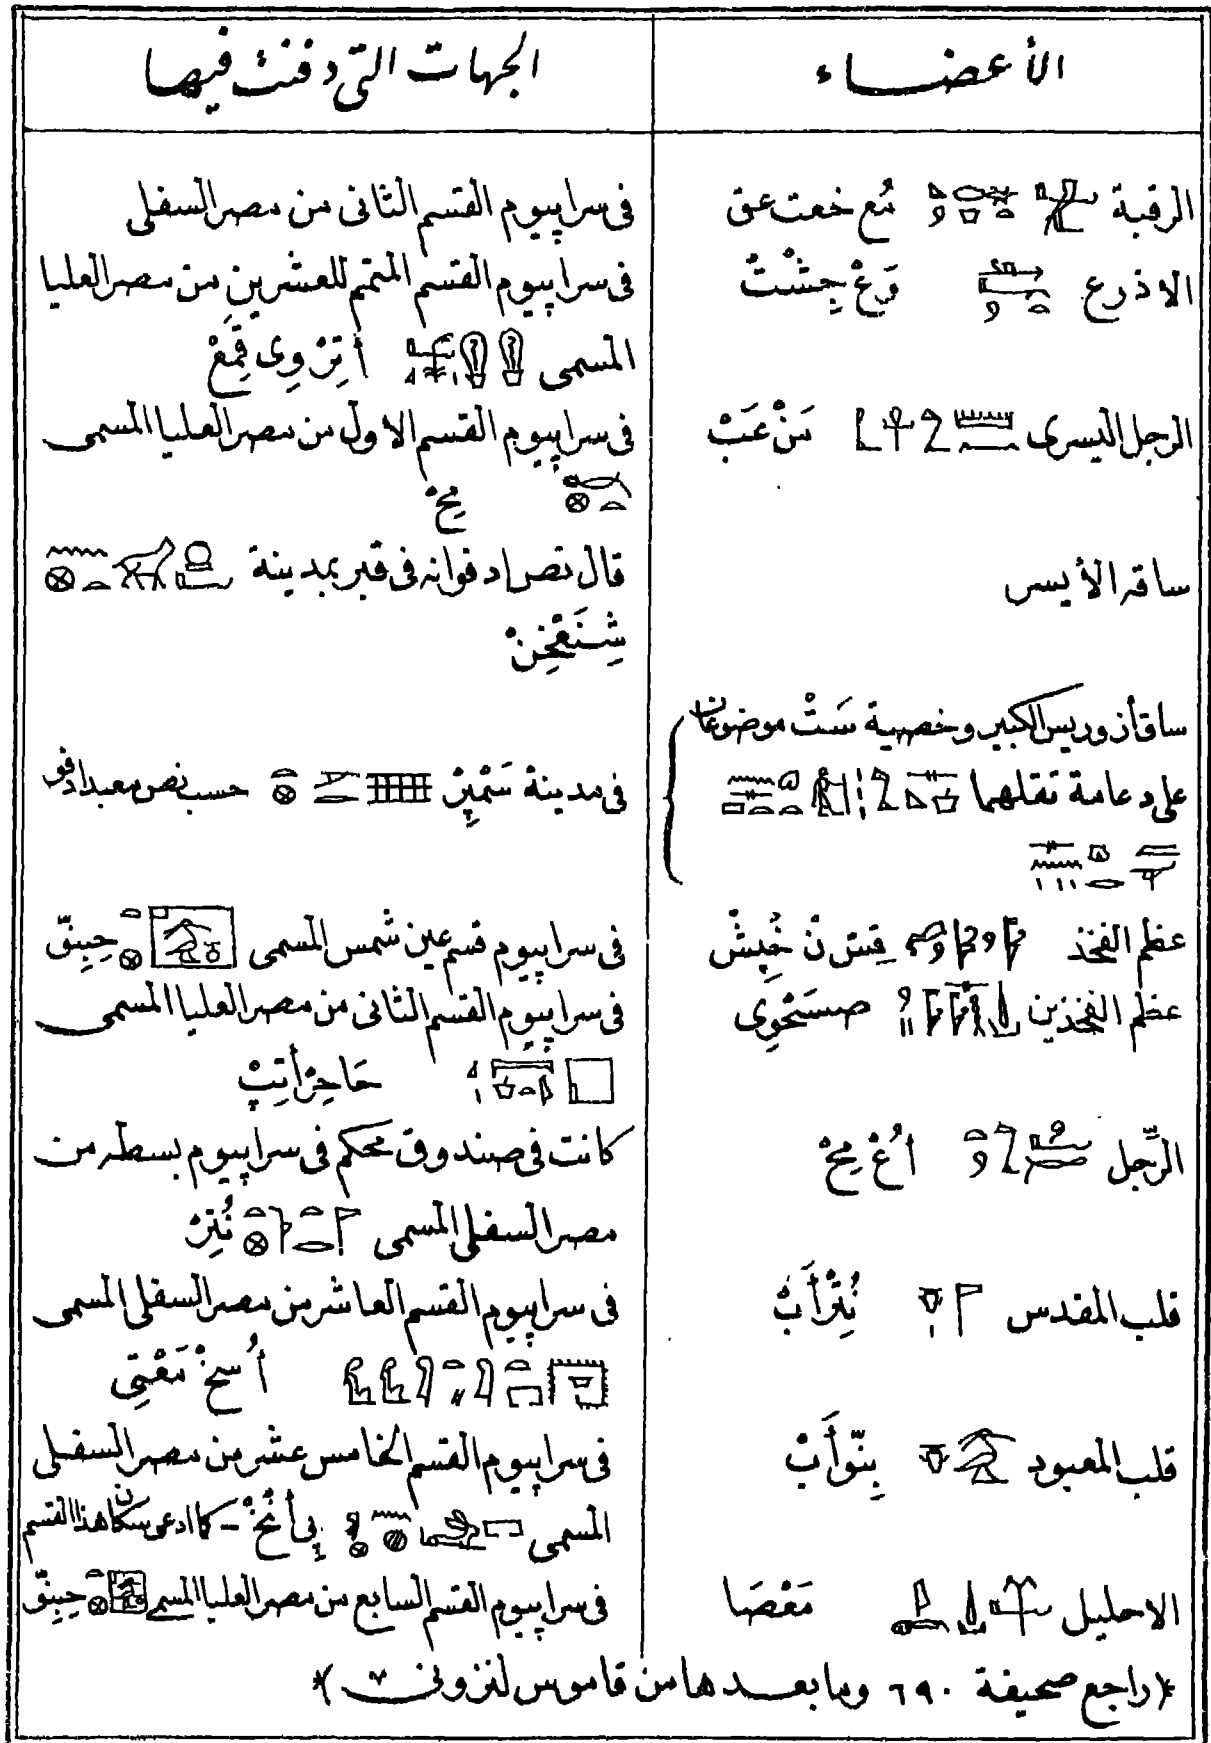 الأعضاء الجهات التى دفنت فيها
الرقبة مُع خعت عق فى سراپيوم القسم الثانى من مصر السفلى
الاذرع وَعْ حِشْتْ فى سراپيوم القسم المتمم للعشرين من مصر العليا
المسمى أتِرْ وِى قِمَعْ
الرجل اليسرى مَنْ عَبْ فى سراپيوم القسم الاول من مصر العليا المسمى
مِحْ
ساقه الأيسر قال نص ادفو انه فى قبر بمدينة
شِنَعْخِنْ
ساق أزوريس الكبير وخصية سَتْ موضوعان
على دعامة تقلهما فى مدينة سَمْپِرْ حسب نص معبد ادفو
عظم الفخذ قِسْ نْ خُپِشْ فى سراپيوم قسم عين شمس المسمى حِبِنّ
عظم الفخذين صسَحْوِى فى سراپيوم القسم الثانى من مصر العليا المسمى
حَاحِرْأتِپْ
الرِّجل أُعْ مِحْ كانت فى صندوق محكم فى سراپيوم بسطه من
مصر السفلى المسمى نُتِرْ
قلب المقدس نُتِرْأَبْ فى سراپيوم القسم العاشر من مصر السفلى المسمى
أُسِخْ مَعْتِى
قلب المعبود بِنّوأَبْ فى سراپيوم القسم الخامس عشر من مصر السفلى
المسمى پِى أُنُخْ - كما ادعى سكان هذا القسم
الاحليل مَعْصَا فى سراپيوم القسم السابع من مصر العليا المسمى حِبِنّ
*(راجع صحيفة ٦٩٠ وما بعدها من قاموس لنزونى ٧)*